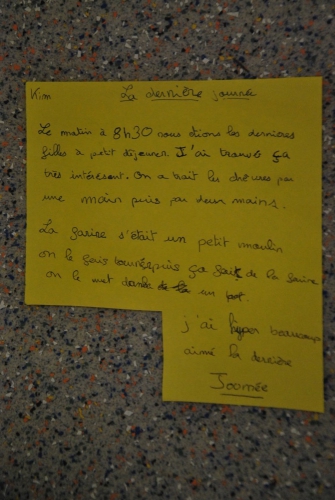 Kim
La dernière journée
Le matin à 8h30 nous étions les dernières
filles à petit déjeuner. J'ai trouvé ça
très intéresent. On a trait les chèvres par
une main puis par deux mains.
La farine s'était un petit moulin
on le fais puis ça fait de la farine
on le met dans un pot.
j'ai hyper beaucoup
aimé la dernière
Journée